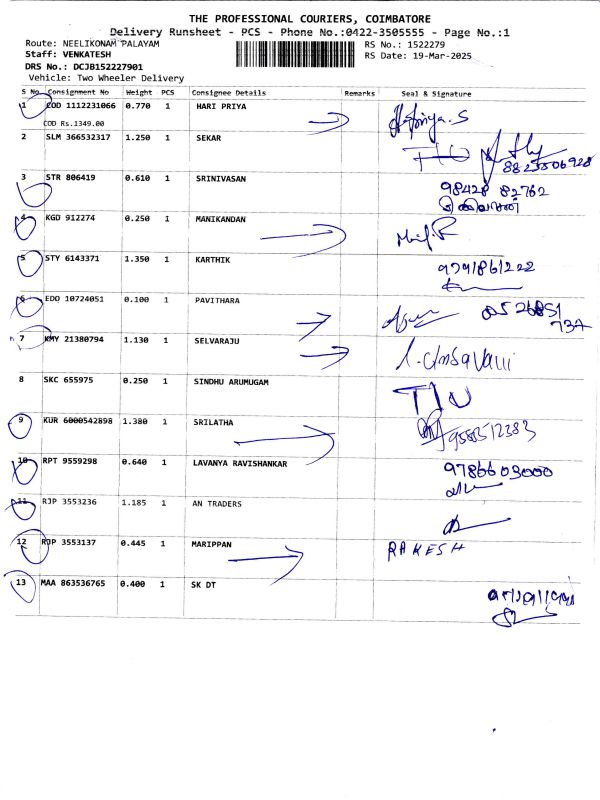 THE PROFESSIONAL COURIERS, COIMBATORE
Delivery Runsheet - PCS - Phone No.:0422-3505555 - Page No.:1
Route: NEELIKONAM PALAYAM RS No.: 1522279
Staff: VENKATESH RS Date: 19-Mar-2025
DRS No.: DCJB152227901
Vehicle: Two Wheeler Delivery
S No. Consignment No Weight PCS Consignee Details Remarks Seal & Signature
1 COD 1112231066 0.770 1 HARI PRIYA
COD Rs.1349.00
2 SLM 366532317 1.250 1 SEKAR
3 STR 806419 0.610 1 SRINIVASAN 98428 82762
4 KGD 912274 0.250 1 MANIKANDAN
5 STY 6143371 1.350 1 KARTHIK 9791861222
6 EDO 10724051 0.100 1 PAVITHARA
7 KMY 21380794 1.130 1 SELVARAJU
8 SKC 655975 0.250 1 SINDHU ARUMUGAM
9 KUR 6000542898 1.380 1 SRILATHA
10 RPT 9559298 0.640 1 LAVANYA RAVISHANKAR 9786603000
11 RJP 3553236 1.185 1 AN TRADERS
12 RJP 3553137 0.445 1 MARIPPAN RAKESH
13 MAA 863536765 0.400 1 SK DT